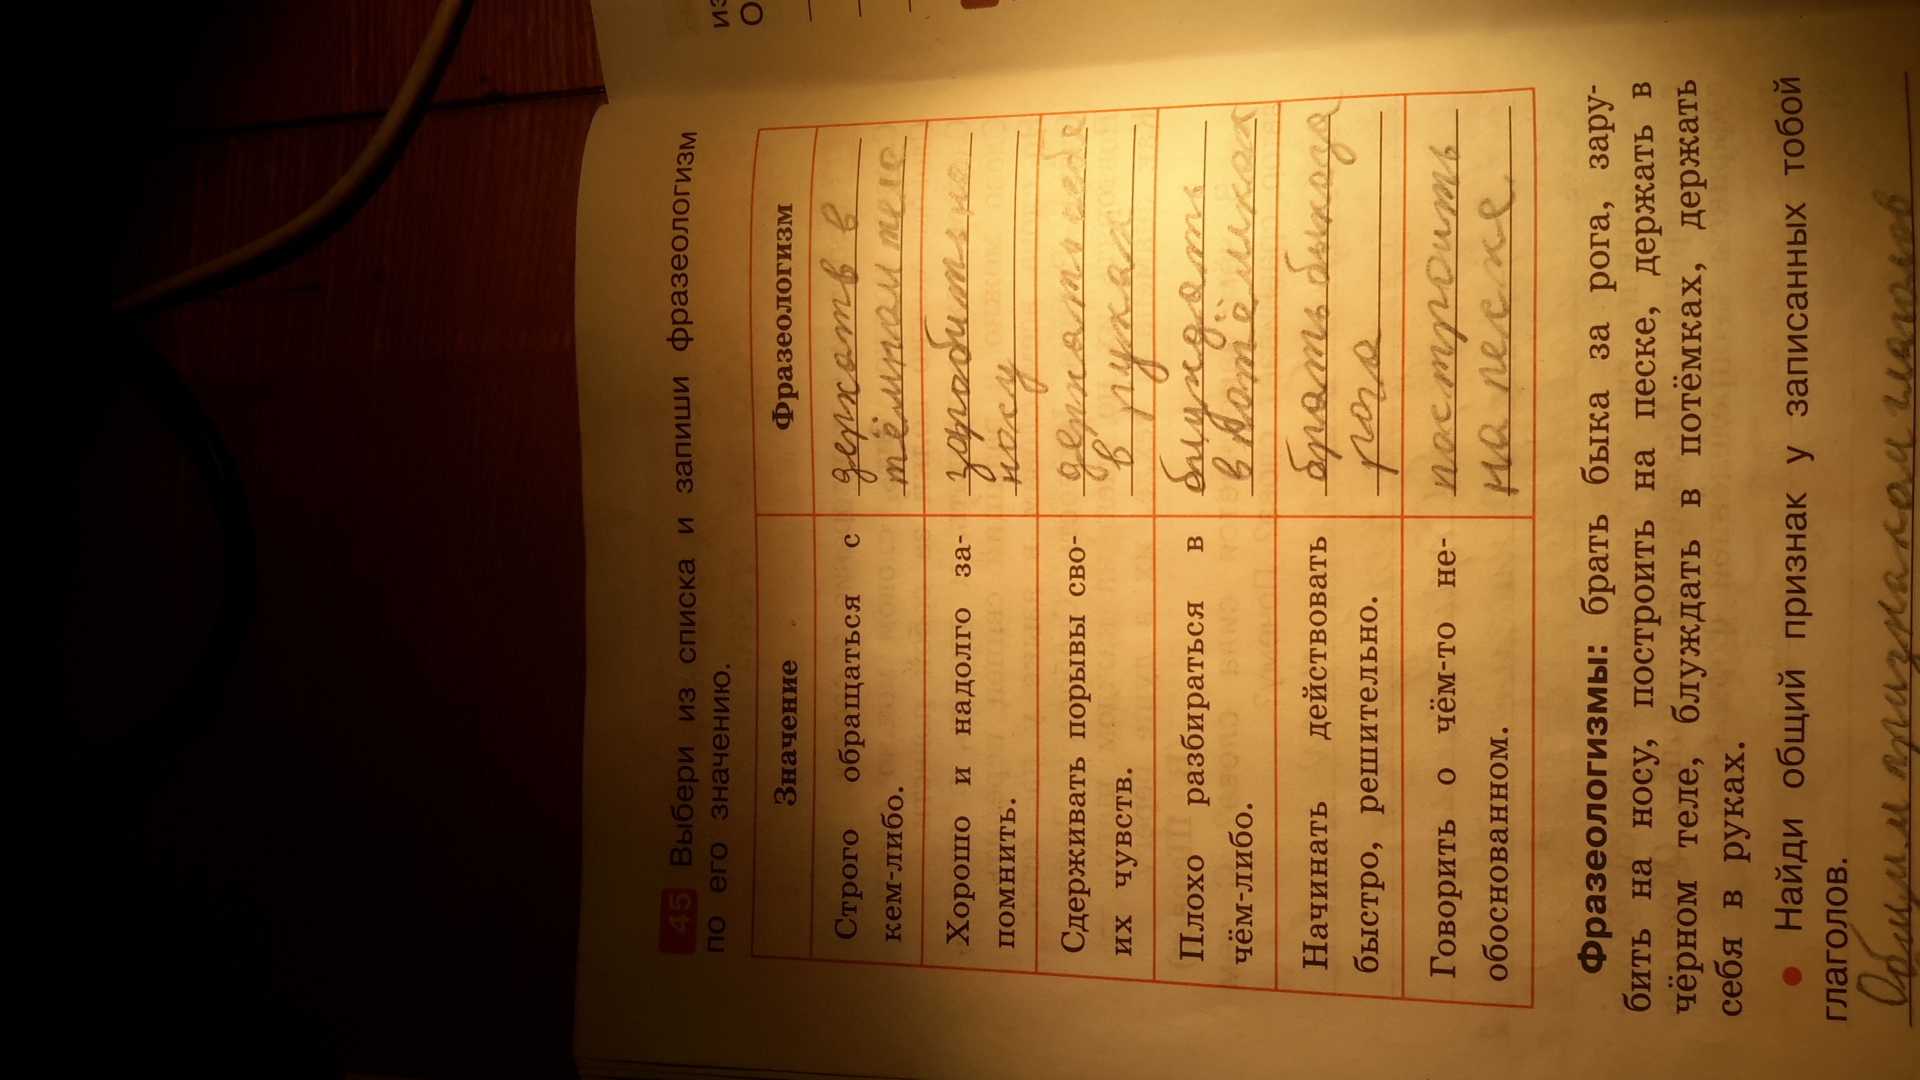 из
О
45 Выбери из списка и запиши фразеологизм
по его значению.
Значение Фразеологизм
Строго обращаться с держать в
кем-либо. тёмном теле
Хорошо и надолго за- зарубить на
помнить. носу
Сдерживать порывы сво- держать себя
их чувств. в руках
Плохо разбираться в блуждать
чём-либо. в потёмках
Начинать действовать брать быка за
быстро, решительно. рога
Говорить о чём-то не- построить
обоснованном. на песке.
Фразеологизмы: брать быка за рога, зару-
бить на носу, построить на песке, держать в
чёрном теле, блуждать в потёмках, держать
себя в руках.
• Найди общий признак у записанных тобой
глаголов.
Общим признаком глаголов